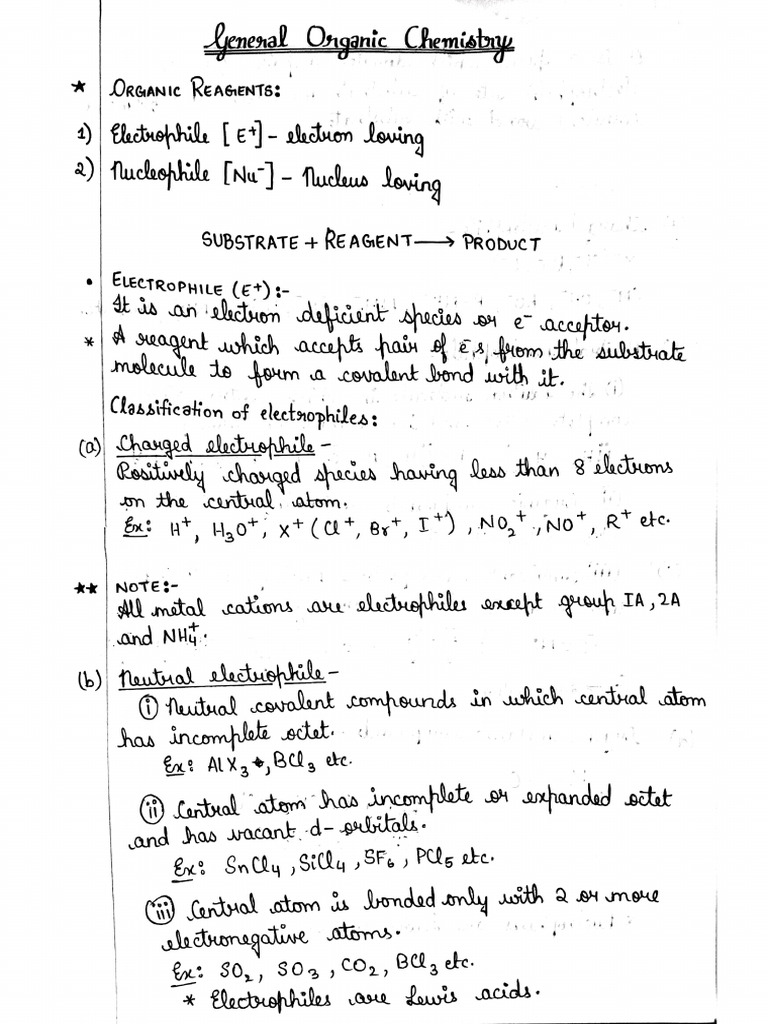 General Organic Chemistry
* ORGANIC REAGENTS:
1) Electrophile [E⁺] - electron loving
2) Nucleophile [Nu⁻] - Nucleus loving
SUBSTRATE + REAGENT ⟶ PRODUCT
• ELECTROPHILE (E⁺):-
It is an electron deficient species or e⁻ acceptor.
* A reagent which accepts pair of e⁻,s from the substrate
molecule to form a covalent bond with it.
Classification of electrophiles:
(a) Charged electrophile -
Positively charged species having less than 8 electrons
on the central atom.
Ex: H⁺, H₃O⁺, X⁺ (Cl⁺, Br⁺, I⁺), NO₂⁺, NO⁺, R⁺ etc.
** NOTE:-
All metal cations are electrophiles except group IA, 2A
and NH₄⁺.
(b) Neutral electrophile -
(i) Neutral covalent compounds in which central atom
has incomplete octet.
Ex: AlX₃, BCl₃ etc.
(ii) Central atom has incomplete or expanded octet
and has vacant d-orbitals.
Ex: SnCl₄, SiCl₄, SF₆, PCl₅ etc.
(iii) Central atom is bonded only with 2 or more
electronegative atoms.
Ex: SO₂, SO₃, CO₂, BCl₃ etc.
* Electrophiles are Lewis acids.